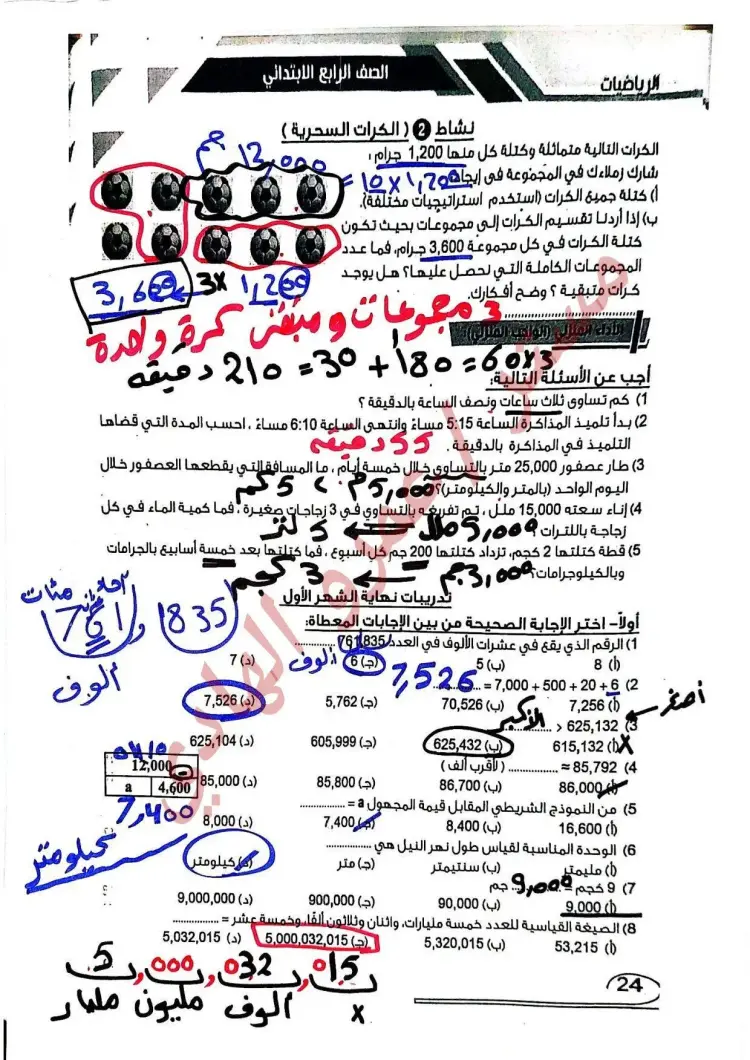 الرياضيات
الصف الرابع الابتدائي
نشاط 2 ( الكرات السحرية )
الكرات التالية متماثلة وكتلة كل منها 1,200 جرام :
شارك زملاءك في المجموعة في إيجاد
أ) كتلة جميع الكرات (استخدم استراتيجيات مختلفة).
ب) إذا أردنا تقسيم الكرات إلى مجموعات بحيث تكون
كتلة الكرات في كل مجموعة 3,600 جرام، فما عدد
المجموعات الكاملة التي نحصل عليها؟ هل يوجد
كرات متبقية ؟ وضح أفكارك.
12,000 جم
= 10 × 1,200
3,600 ← 3× 1,200
3 مجموعات ومتبقى كرة واحدة
60×3 = 180 + 30 = 210 دقيقه
أجب عن الأسئلة التالية:
1) كم تساوى ثلاث ساعات ونصف الساعة بالدقيقة ؟
2) بدأ تلميذ المذاكرة الساعة 5:15 مساءً وانتهى الساعة 6:10 مساءً ، احسب المدة التي قضاها
التلميذ في المذاكرة بالدقيقة . 55 دقيقه
3) طار عصفور 25,000 متر بالتساوى خلال خمسة أيام ، ما المسافة التي يقطعها العصفور خلال
اليوم الواحد (بالمتر والكيلومتر)؟ 5,000م ، 5 كم
4) إناء سعته 15,000 ملل ، تم تفريغه بالتساوى في 3 زجاجات صغيرة ، فما كمية الماء في كل
زجاجة باللترات ؟ 5,000 ملل ← 5 لتر
5) قطة كتلتها 2 كجم، تزداد كتلتها 200 جم كل أسبوع ، فما كتلتها بعد خمسة أسابيع بالجرامات
وبالكيلوجرامات؟ 3,000 جم ← 3 كجم
تدريبات نهاية الشهر الأول
أولاً- اختر الإجابة الصحيحة من بين الإجابات المعطاة:
761,835
مئات
ألوف
1) الرقم الذي يقع في عشرات الألوف في العدد 761,835 ............
(أ) 8 (ب) 5 (جـ) 6 ألوف (د) 7
2) 6 + 20 + 500 + 7,000 = ............ 7,526
(أ) 7,256 (ب) 70,526 (جـ) 5,762 (د) 7,526
3) 625,132 < ............ الأكبر
أصغر
(أ) 615,132 (ب) 625,432 (جـ) 605,999 (د) 625,104
4) 85,792 ≈ ............ ( لأقرب ألف )
(أ) 86,000 (ب) 86,700 (جـ) 85,800 (د) 85,000
5) من النموذج الشريطي المقابل قيمة المجهول a = ............
12,000
a 4,600
7,400
(أ) 16,600 (ب) 8,400 (جـ) 7,400 (د) 8,000
6) الوحدة المناسبة لقياس طول نهر النيل هي ............
(أ) مليمتر (ب) سنتيمتر (جـ) متر (د) كيلومتر
كيلومتر
7) 9 كجم = ............ جم 9,000
(أ) 9,000 (ب) 90,000 (جـ) 900,000 (د) 9,000,000
8) الصيغة القياسية للعدد خمسة مليارات، واثنان وثلاثون ألفًا، وخمسة عشر = ............
(أ) 53,215 (ب) 5,320,015 (جـ) 5,000,032,015 (د) 5,032,015
5,000,032,015
مليار مليون ألوف x
24
مستر / عمرو الهادي